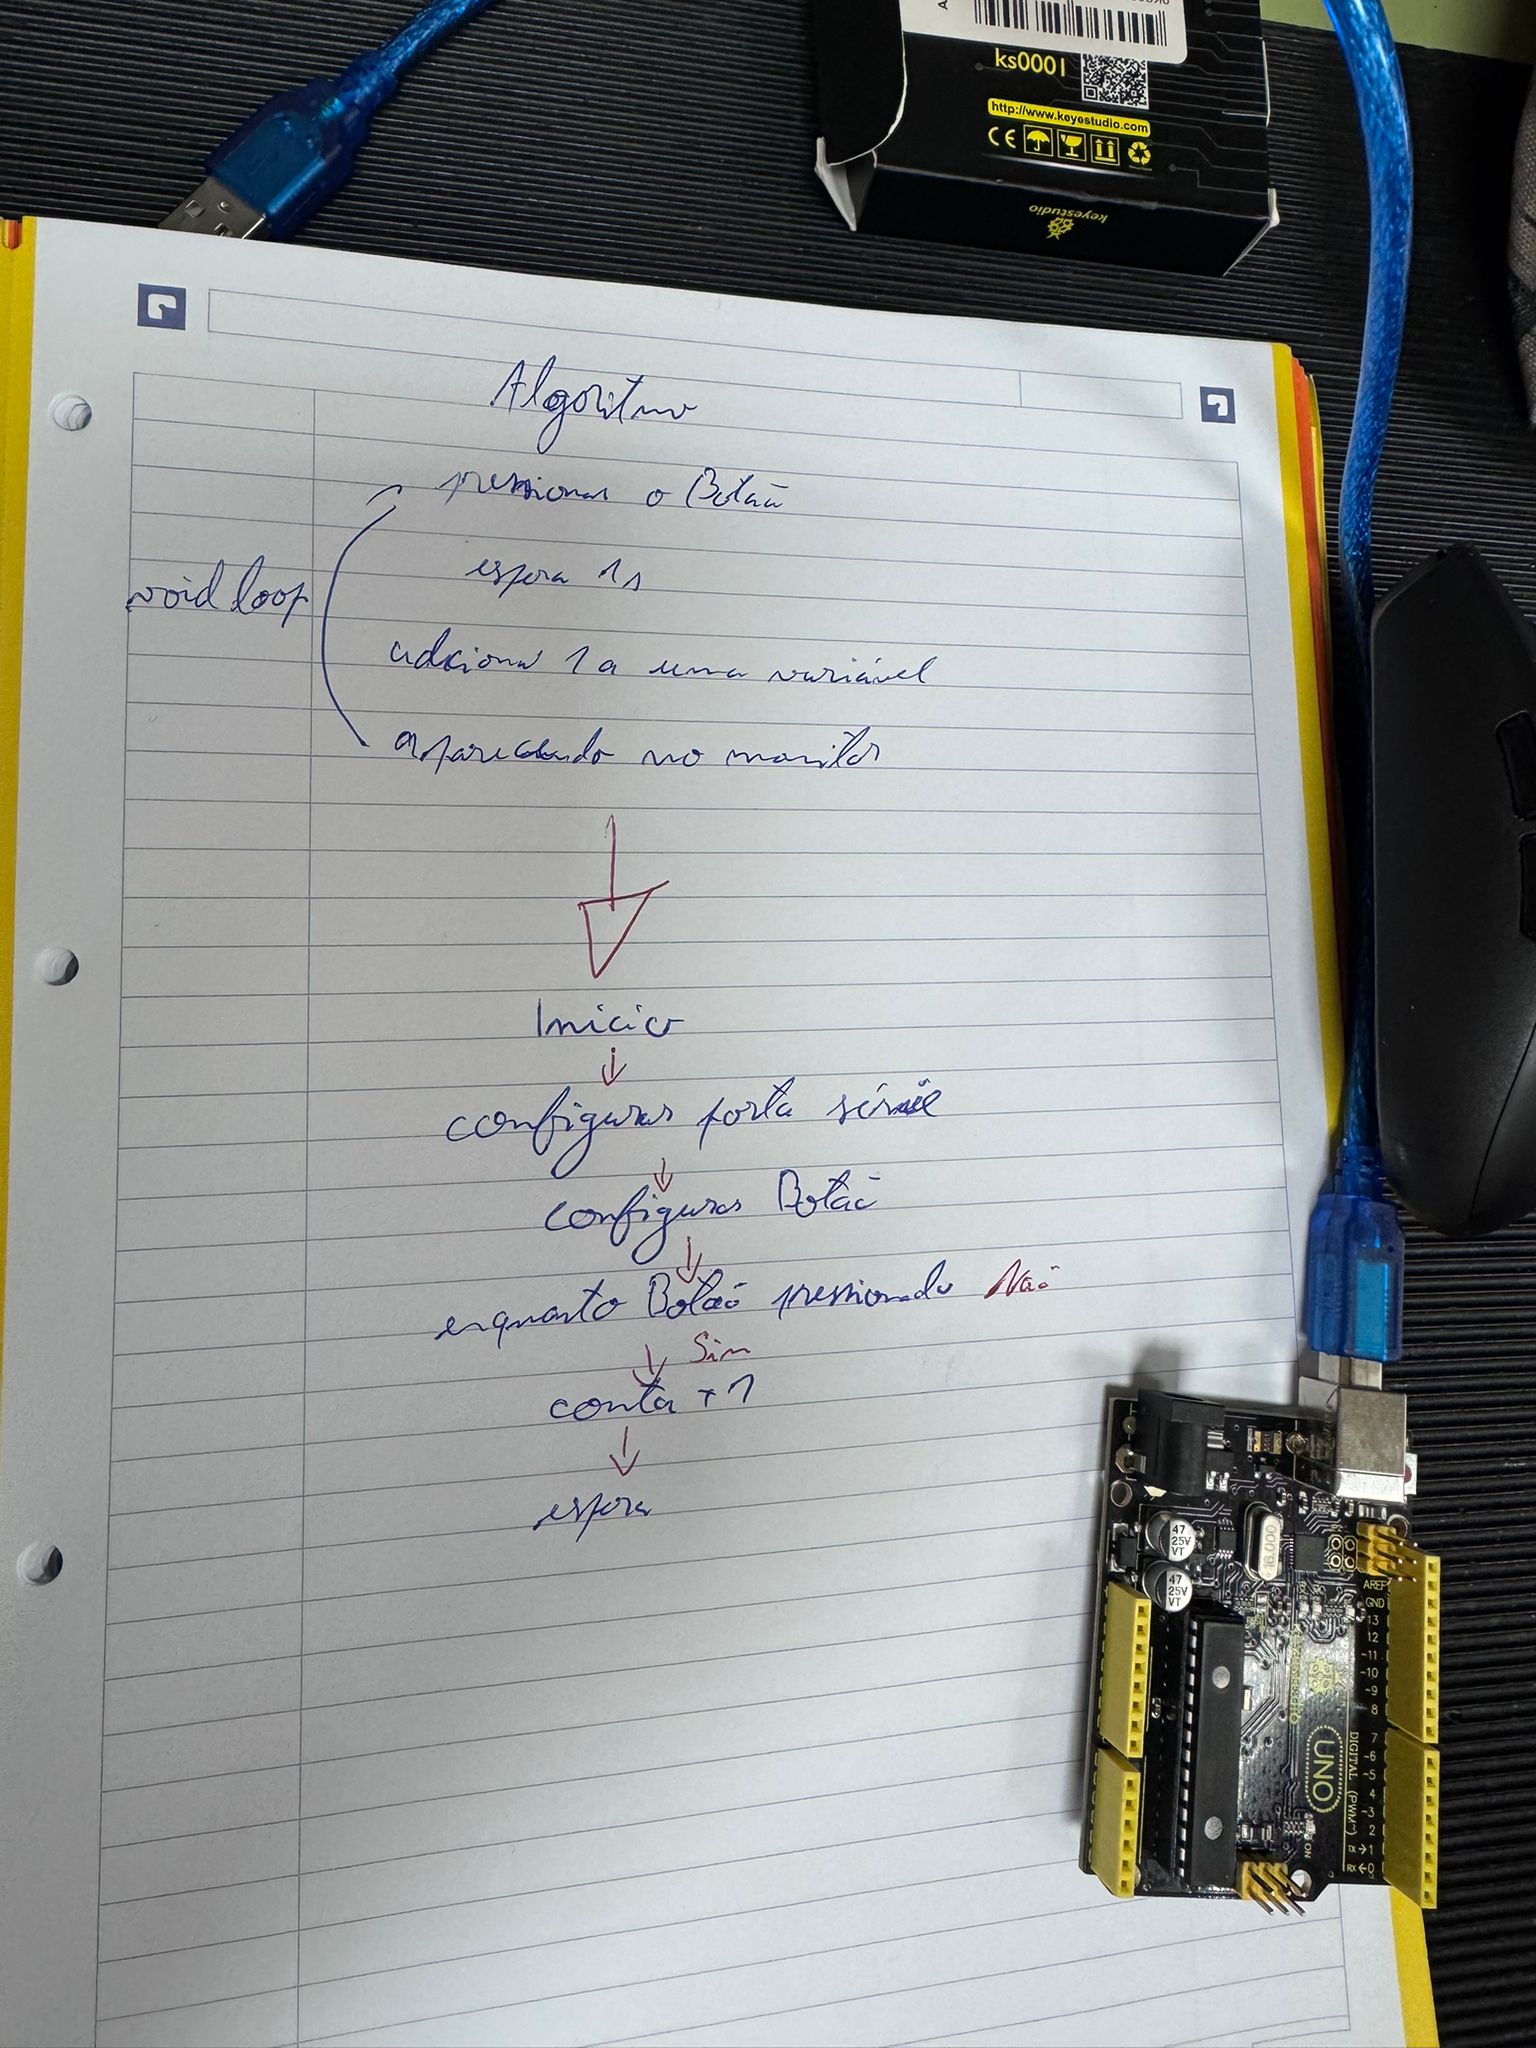 ks0001
http://www.keyestudio.com
CE
keyestudio
Algoritmo
pressionar o Botão
espera 1s
void loop
adiciona 1 a uma variável
aparecendo no monitor
Inicio
configurar porta série
configurar Botão
enquanto Botão pressionado Não
Sim
conta + 1
espera
47
25V
VT
47
25V
VT
16.000
AREF
GND
13
12
~11
~10
~9
8
7
~6
~5
4
~3
2
TX→1
RX←0
DIGITAL (PWM~)
UNO
ON